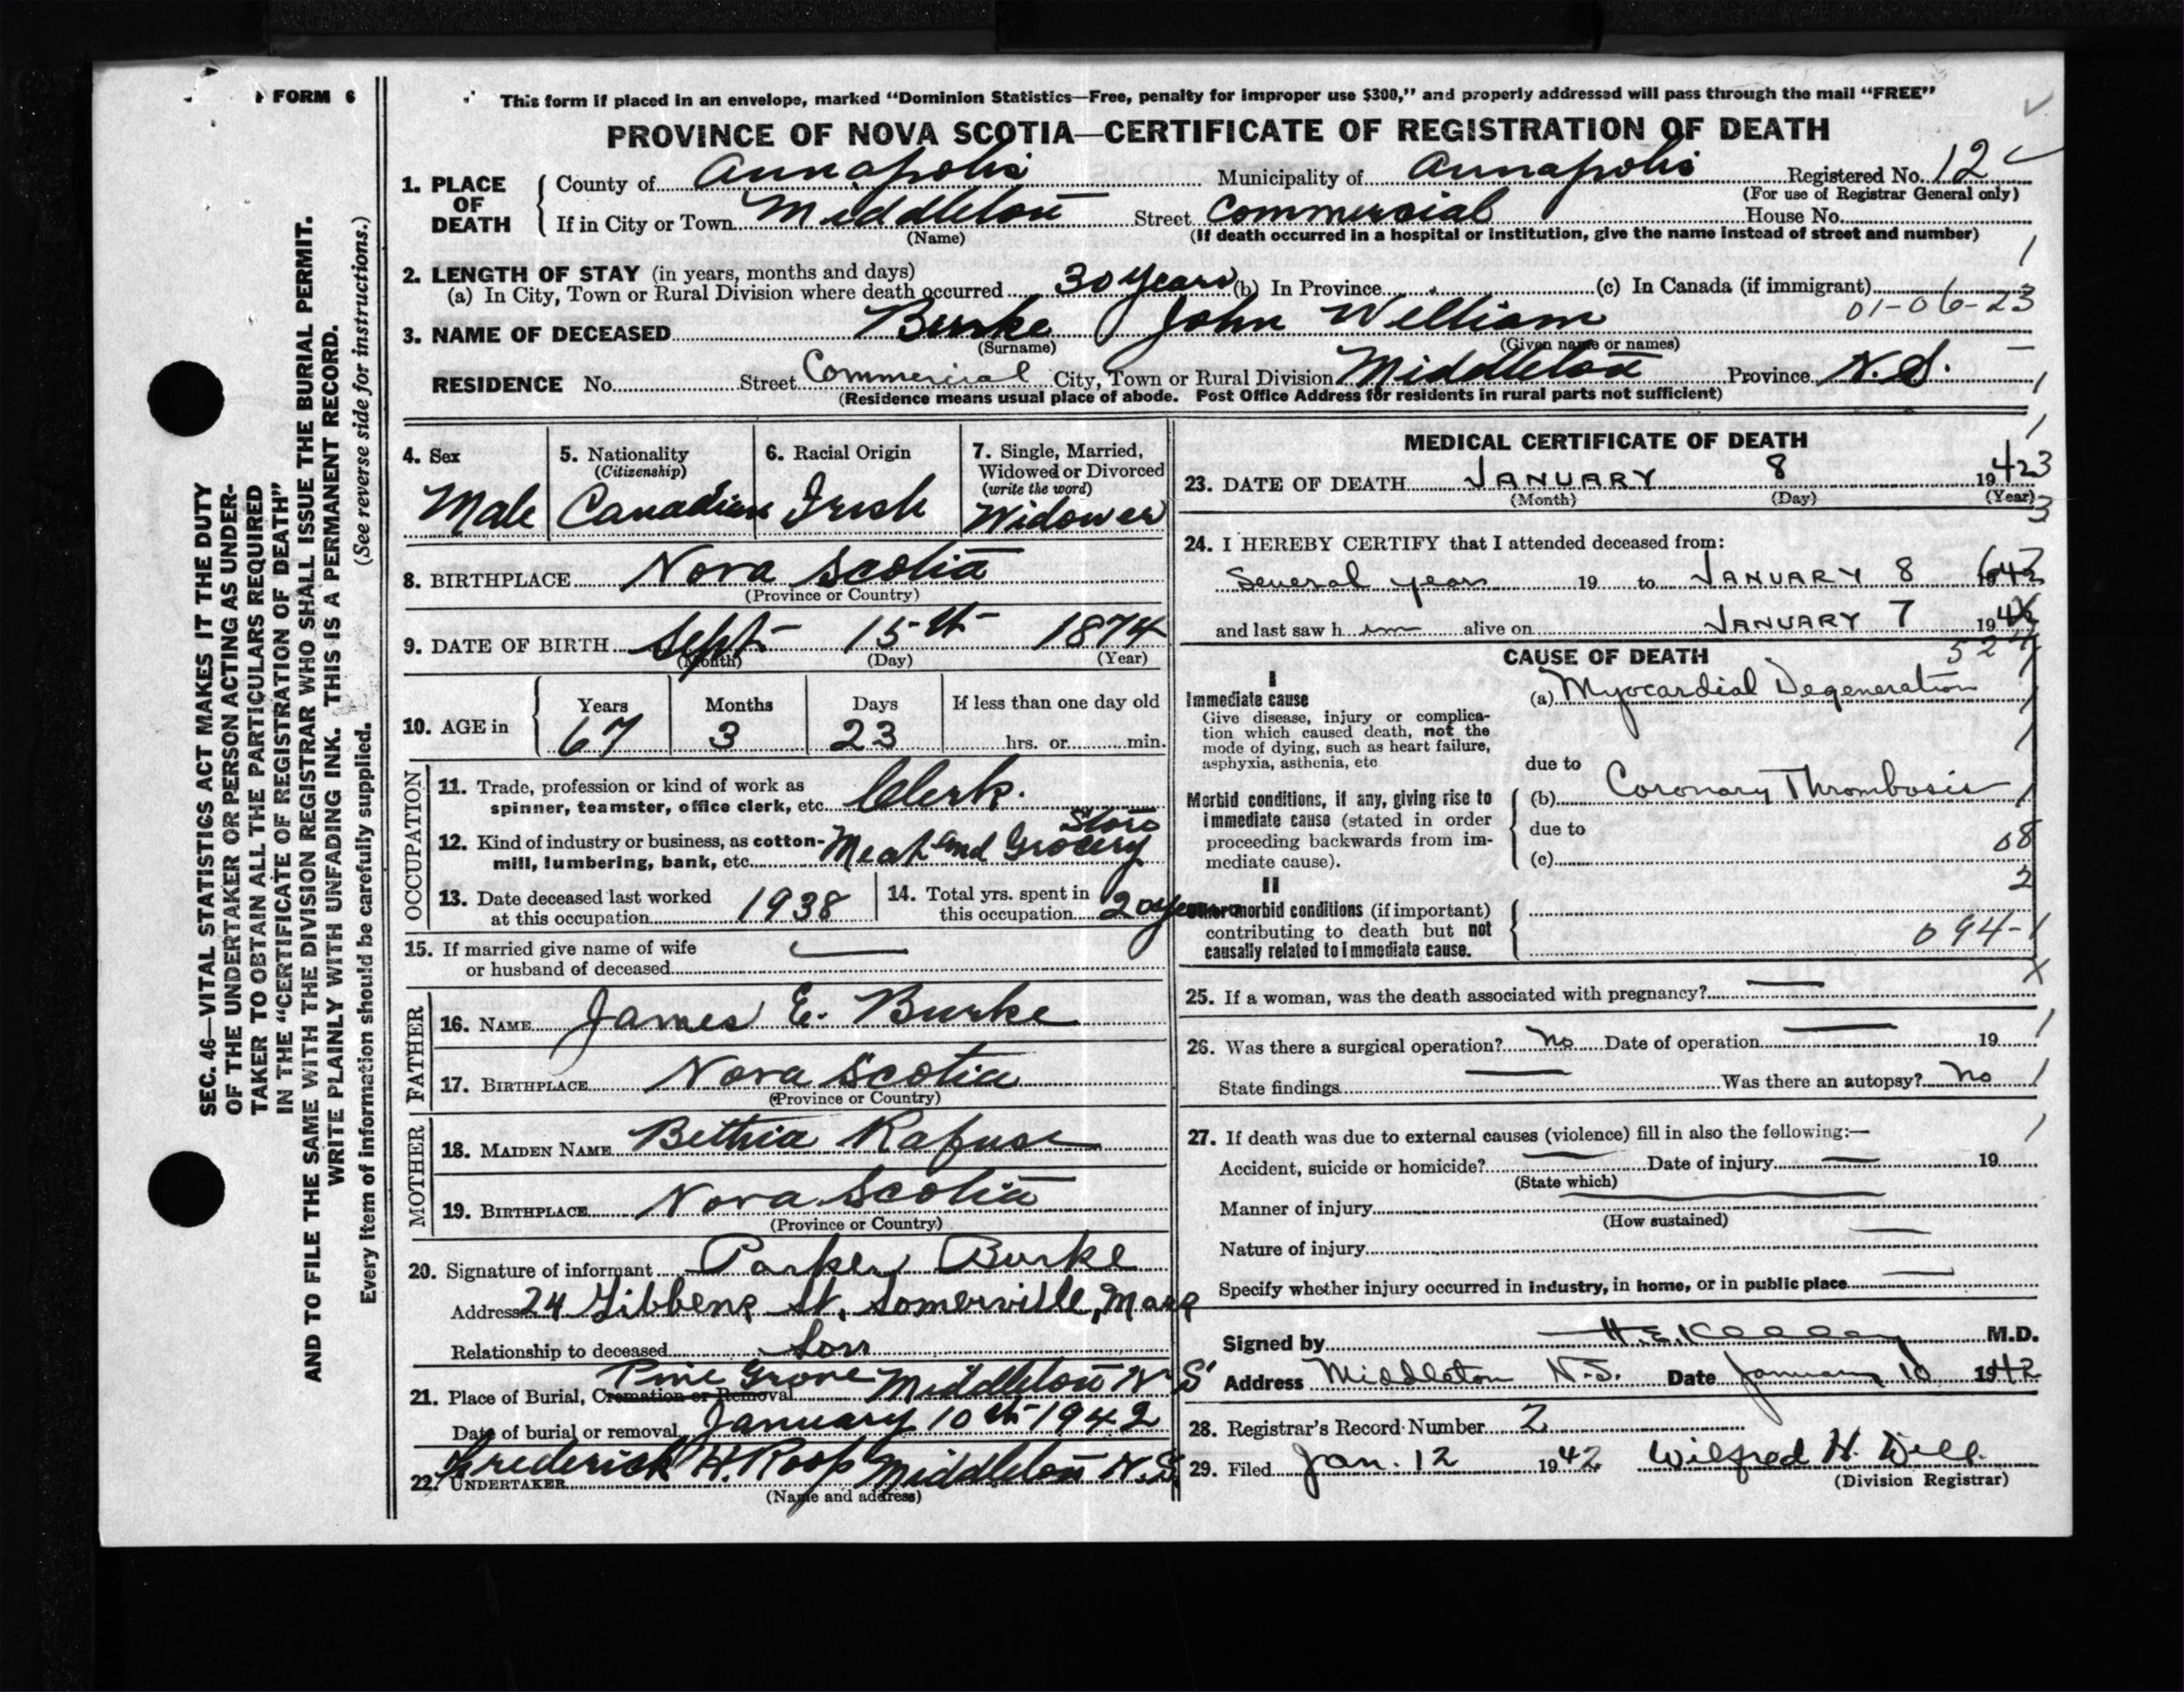 FORM 6
This form if placed in an envelope, marked "Dominion Statistics—Free, penalty for improper use $300," and properly addressed will pass through the mail "FREE"
PROVINCE OF NOVA SCOTIA—CERTIFICATE OF REGISTRATION OF DEATH
1. PLACE OF DEATH County of Annapolis Municipality of Annapolis Registered No. 12
(For use of Registrar General only)
If in City or Town Middleton Street Commercial House No.
(Name) (If death occurred in a hospital or institution, give the name instead of street and number)
2. LENGTH OF STAY (in years, months and days)
(a) In City, Town or Rural Division where death occurred 30 years (b) In Province (c) In Canada (if immigrant)
01-06-23
3. NAME OF DECEASED Burke John William
(Surname) (Given name or names)
RESIDENCE No. Street Commercial City, Town or Rural Division Middleton Province N.S.
(Residence means usual place of abode. Post Office Address for residents in rural parts not sufficient)
4. Sex 5. Nationality (Citizenship) 6. Racial Origin 7. Single, Married, Widowed or Divorced (write the word)
Male Canadian Irish Widower
8. BIRTHPLACE Nova Scotia
(Province or Country)
9. DATE OF BIRTH Sept 15th 1874
(Month) (Day) (Year)
10. AGE in Years Months Days If less than one day old
67 3 23 hrs. or min.
OCCUPATION
11. Trade, profession or kind of work as
spinner, teamster, office clerk, etc. Clerk.
12. Kind of industry or business, as cotton-
mill, lumbering, bank, etc. Meat and Grocery Store
13. Date deceased last worked
at this occupation 1938
14. Total yrs. spent in
this occupation 20 years
15. If married give name of wife
or husband of deceased —
FATHER
16. NAME James E. Burke
17. BIRTHPLACE Nova Scotia
(Province or Country)
MOTHER
18. MAIDEN NAME Bethia Rafuse
19. BIRTHPLACE Nova Scotia
(Province or Country)
20. Signature of informant Parker Burke
Address 24 Gibbens St, Somerville, Mass
Relationship to deceased Son
21. Place of Burial, Cremation or Removal Pine Grove Middleton N S
Date of burial or removal January 10th 1942
22. UNDERTAKER Frederick H. Roop Middleton N.S.
(Name and address)
MEDICAL CERTIFICATE OF DEATH
23. DATE OF DEATH JANUARY 8 1942
(Month) (Day) (Year)
24. I HEREBY CERTIFY that I attended deceased from:
Several years 19 to JANUARY 8 1942
and last saw him alive on JANUARY 7 19
CAUSE OF DEATH
I
Immediate cause
Give disease, injury or complica-
tion which caused death, not the
mode of dying, such as heart failure,
asphyxia, asthenia, etc
(a) Myocardial Degeneration
due to
Morbid conditions, if any, giving rise to
immediate cause (stated in order
proceeding backwards from im-
mediate cause).
(b) Coronary Thrombosis
due to
(c)
08
II
2
Other morbid conditions (if important)
contributing to death but not
causally related to immediate cause.
094-1
25. If a woman, was the death associated with pregnancy? —
26. Was there a surgical operation? No Date of operation — 19
State findings — Was there an autopsy? No
27. If death was due to external causes (violence) fill in also the following:—
Accident, suicide or homicide? — Date of injury — 19
(State which)
Manner of injury —
(How sustained)
Nature of injury —
Specify whether injury occurred in industry, in home, or in public place —
Signed by M.D.
Address Middleton N.S. Date January 10 1942
28. Registrar's Record Number 2
29. Filed Jan. 12 1942 Wilfred H.
(Division Registrar)
SEC. 46—VITAL STATISTICS ACT MAKES IT THE DUTY
OF THE UNDERTAKER OR PERSON ACTING AS UNDER-
TAKER TO OBTAIN ALL THE PARTICULARS REQUIRED
IN THE "CERTIFICATE OF REGISTRATION OF DEATH"
AND TO FILE THE SAME WITH THE DIVISION REGISTRAR WHO SHALL ISSUE THE BURIAL PERMIT.
WRITE PLAINLY WITH UNFADING INK. THIS IS A PERMANENT RECORD.
Every item of information should be carefully supplied. (See reverse side for instructions.)